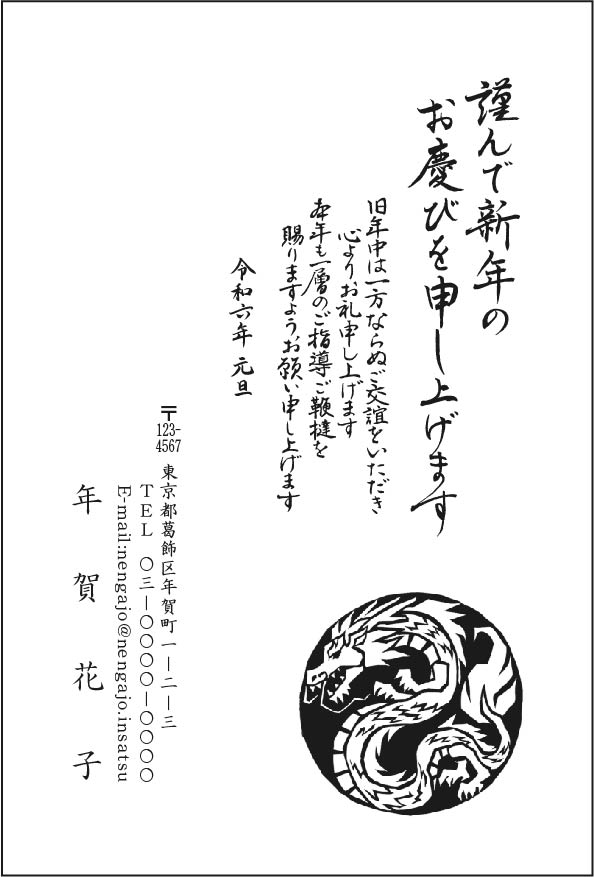 謹んで新年の
お慶びを申し上げます
旧年中は一方ならぬご交誼をいただき
心よりお礼申し上げます
本年も一層のご指導ご鞭撻を
賜りますようお願い申し上げます
令和六年 元旦
〒123-4567
東京都葛飾区年賀町一ー二ー三
TEL 〇三ー〇〇〇〇ー〇〇〇〇
E-mail:nengajo@nengajo.insatsu
年賀花子